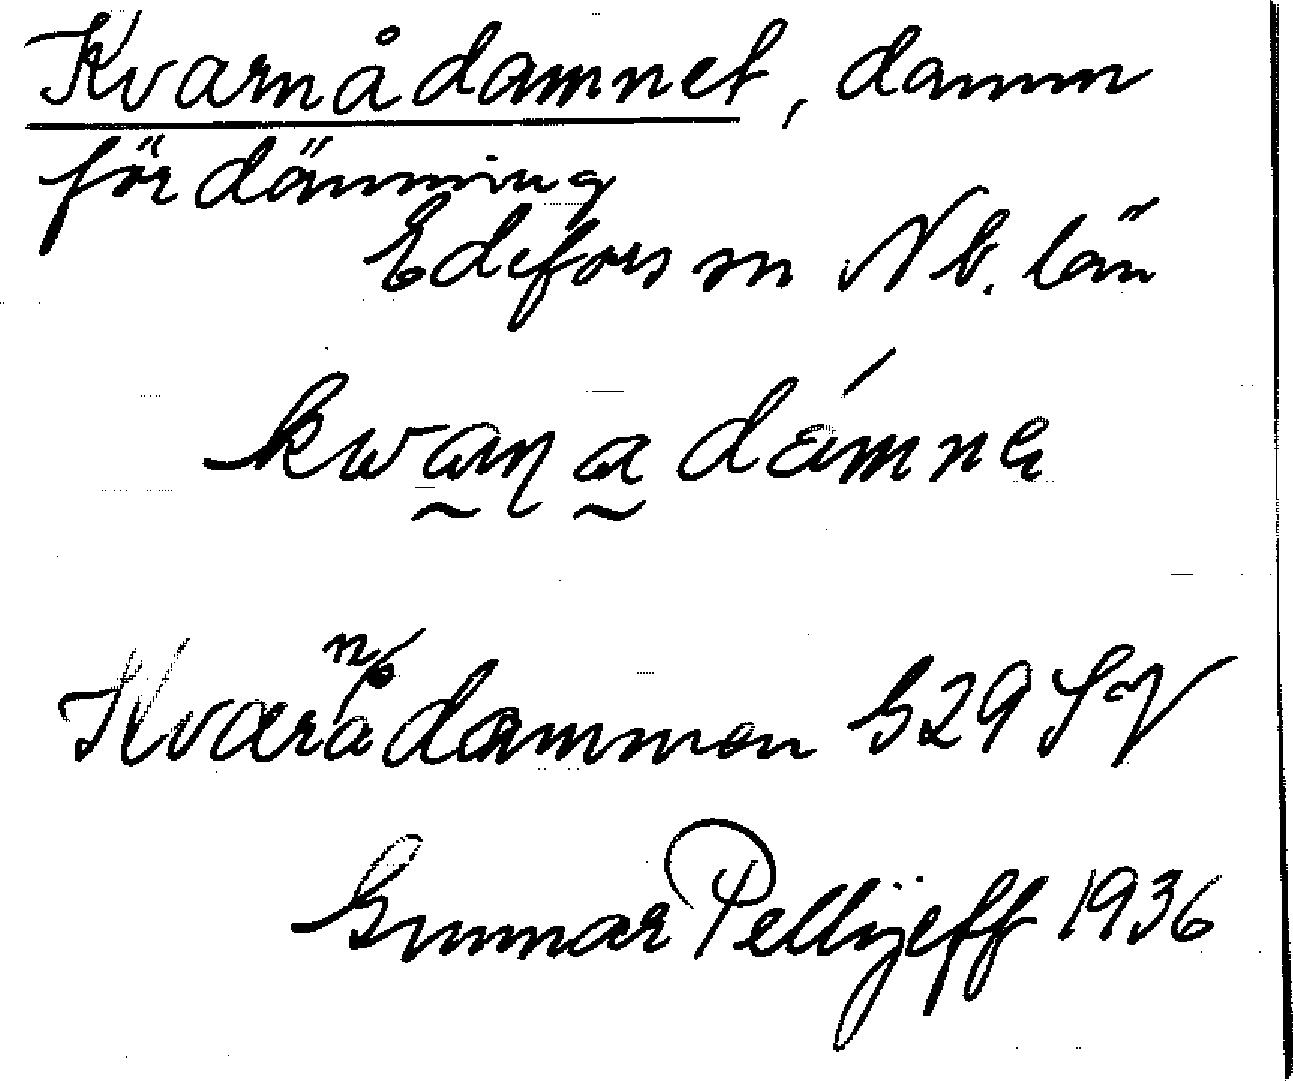 Kvarnådamnet, damm
för dämning
Edefors sn Nb. län
kwaṇ a dámnɐ
Kvarnådammen G29 SV
Gunnar Pellijeff 1936